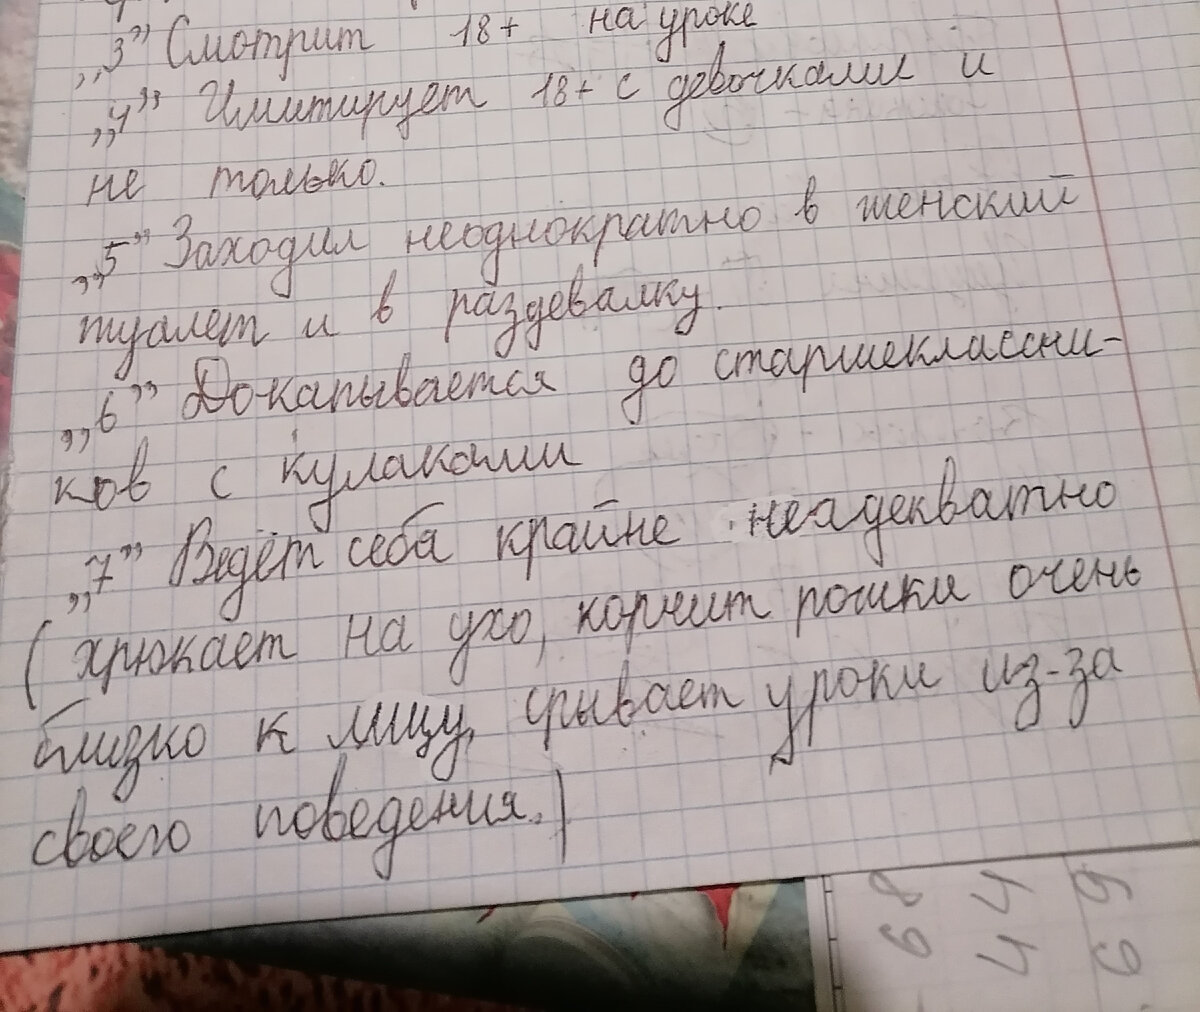 „3” Смотрит 18+ на уроке
„4” Имитирует 18+ с девочками и
не только.
„5” Заходил неоднократно в женский
туалет и в раздевалку.
„6” Докапывается до старшеклассни-
ков с кулаками
„7” Ведёт себя крайне неадекватно
(хрюкает на ухо, корчит рошки очень
близко к лицу, срывает уроки из-за
своего поведения.)
8 4 5
9 4 9